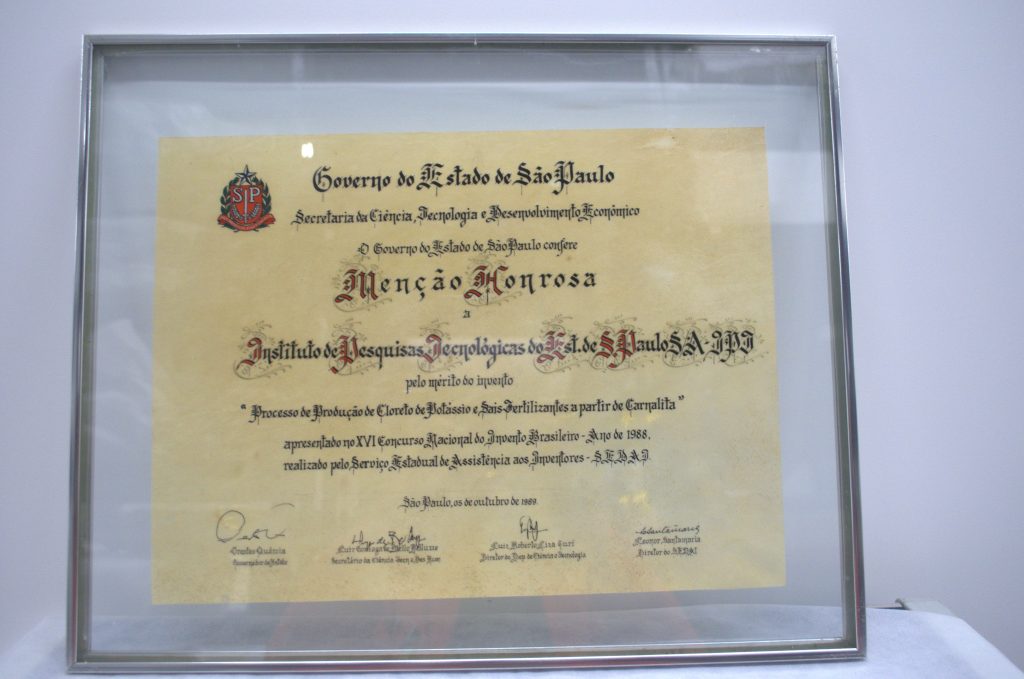 SP
Governo do Estado de São Paulo
Secretaria da Ciência, Tecnologia e Desenvolvimento Econômico
O Governo do Estado de São Paulo confere
Menção Honrosa
a
Instituto de Pesquisas Tecnológicas do Est. de S. Paulo S.A-IPT
pelo mérito do invento
" Processo de Produção de Cloreto de Potássio e Sais Fertilizantes a partir de Carnalita "
apresentado no XVI Concurso Nacional do Invento Brasileiro - Ano de 1988,
realizado pelo Serviço Estadual de Assistência aos Inventores - S.E.D.A.I
São Paulo, 05 de outubro de 1989.
Orestes Quércia
Governador do Estado
Luiz Gonzaga de Mello Belluzzo
Secretário da Ciência Tecn e Des Econ
Luiz Roberto Liza Curi
Diretor do Dep. de Ciência e Tecnologia
Leonor Santanaria
Diretor do SEDAI